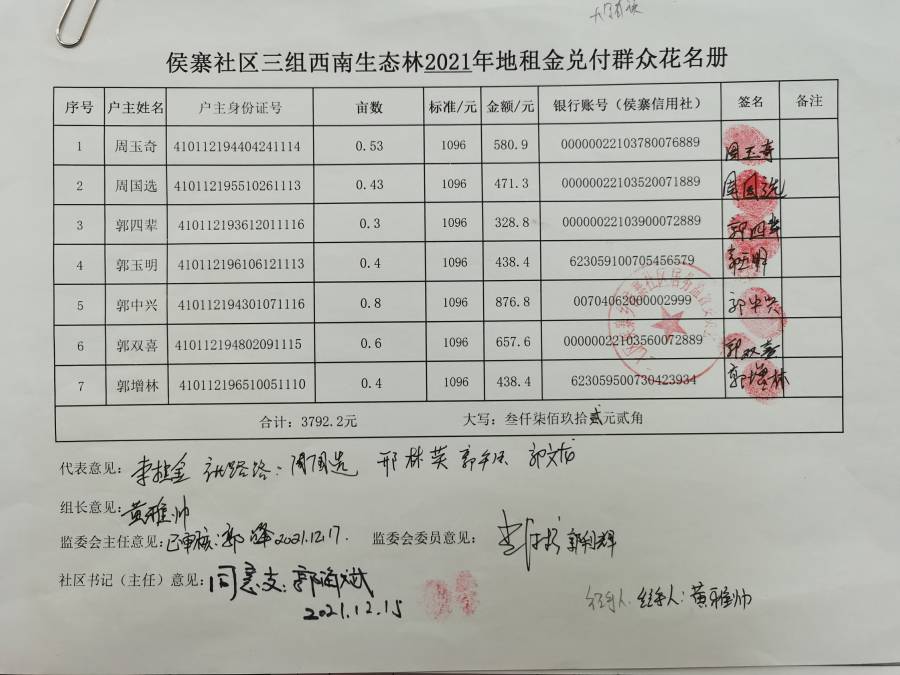 侯寨社区三组西南生态林2021年地租金兑付群众花名册
序号 户主姓名 户主身份证号 亩数 标准/元 金额/元 银行账号（侯寨信用社） 签名 备注
1 周玉奇 410112194404241114 0.53 1096 580.9 00000022103780076889 周玉奇
2 周国选 410112195510261113 0.43 1096 471.3 00000022103520071889 周国选
3 郭四辈 410112193612011116 0.3 1096 328.8 00000022103900072889 郭四辈
4 郭玉明 410112196106121113 0.4 1096 438.4 623059100705456579 郭玉明
5 郭中兴 410112194301071116 0.8 1096 876.8 00704062000002999 郭中兴
6 郭双喜 410112194802091115 0.6 1096 657.6 00000022103560072889 郭双喜
7 郭增林 410112196510051110 0.4 1096 438.4 623059500730423934 郭增林
合计：3792.2元 大写：叁仟柒佰玖拾贰元贰角
代表意见： 周国选 邢林英
组长意见：黄雅帅
监委会主任意见：已审核：郭 2021.12.17. 监委会委员意见： 郭利辉
社区书记（主任）意见：同意支. 郭海斌
2021.12.15
经手人. 经手人：黄雅帅